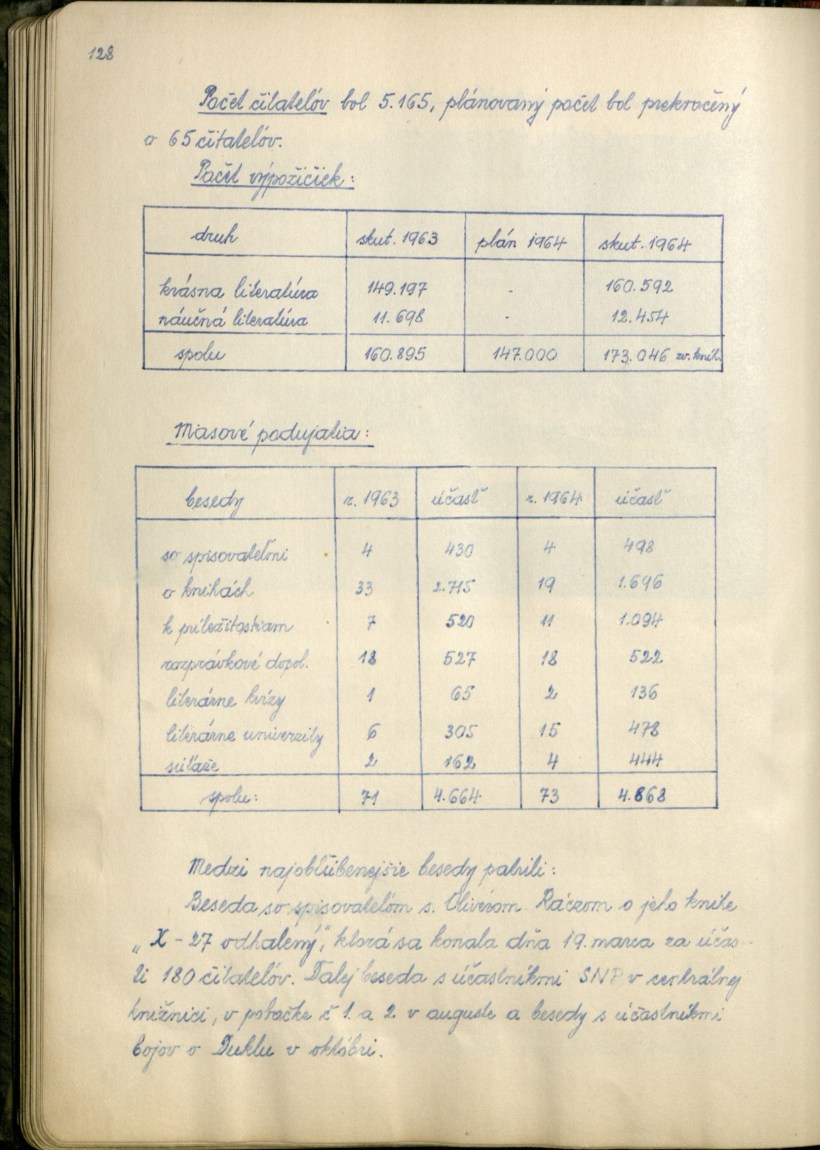 128
Počet čitateľov bol 5.165, plánovaný počet bol prekročený
o 65 čitateľov.
Počet výpožičiek:
druh skut. 1963 plán 1964 skut. 1964
krásna literatúra 149.197 - 160.592
náučná literatúra 11.698 - 12.454
spolu 160.895 147.000 173.046 zv. kníh
Masové podujatia:
besedy r. 1963 účasť r. 1964 účasť
so spisovateľmi 4 430 4 498
o knihách 33 2.715 19 1.696
k príležitostiam 7 520 11 1.094
rozprávkové dopol. 18 527 18 522
literárne kvízy 1 65 2 136
literárne univerzity 6 305 15 478
súťaže 2 162 4 444
spolu: 71 4.664 73 4.868
Medzi najobľúbenejšie besedy patrili:
Beseda so spisovateľom s. Oliverom Ráczom o jeho knihe
„X - 27 odhalený", ktorá sa konala dňa 19. marca za účas-
ti 180 čitateľov. Ďalej beseda s účastníkmi SNP v centrálnej
knižnici, v pobočke č 1. a 2. v auguste a besedy s účastníkmi
bojov o Duklu v októbri.